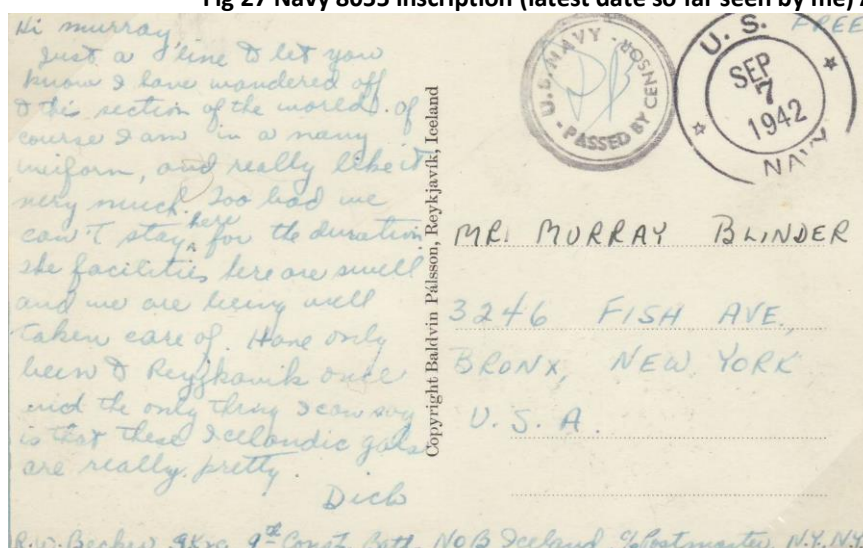 Fig 27 Navy 8055 inscription (latest date so far seen by me)
Hi Murray
Just a line to let you
know I have wandered off
to this section of the world. Of
course I am in a navy
uniform, and really like it
very much. Too bad we
can't stay here for the duration
The facilities here are swell
and we are being well
taken care of. Have only
been to Reyjkavik once
and the only thing I can say
is that these Icelandic gals
are really pretty
Dick
R.W. Becker 9th Const. Batt. NOB Iceland c/o Postmaster, N.Y. N.Y.
Copyright Baldvin Pálsson, Reykjavík, Iceland
U.S. NAVY
PASSED BY CENSOR
FREE
U. S.
SEP
7
1942
NAVY
MR. MURRAY BLINDER
3246 FISH AVE.,
BRONX, NEW YORK
U. S. A.